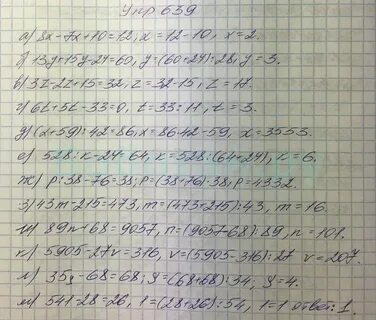 Упр 639
а) 8x-7x+10=12, x=12-10, x=2.
б) 13y+15y-24=60, y=(60+24):28, y=3.
в) 3z-2z+15=32, z=32-15, z=17.
г) 6t+5t-33=0, t=33:11, t=3.
д) (x+59):42=86, x=86·42-59, x=3553.
е) 528:k-24=64, k=528:(64+24), k=6.
ж) p:38-76=38; p=(38+76)·38; p=4332.
з) 43m-215=473, m=(473+215):43, m=16.
и) 89n+68=9057, n=(9057-68):89, n=101.
к) 5905-27v=316, v=(5905-316):27 v=207.
л) 35y-68=68; y=(68+68):34, y=4.
м) 54t-28=26, t=(28+26):54, t=1 ответ: 1.